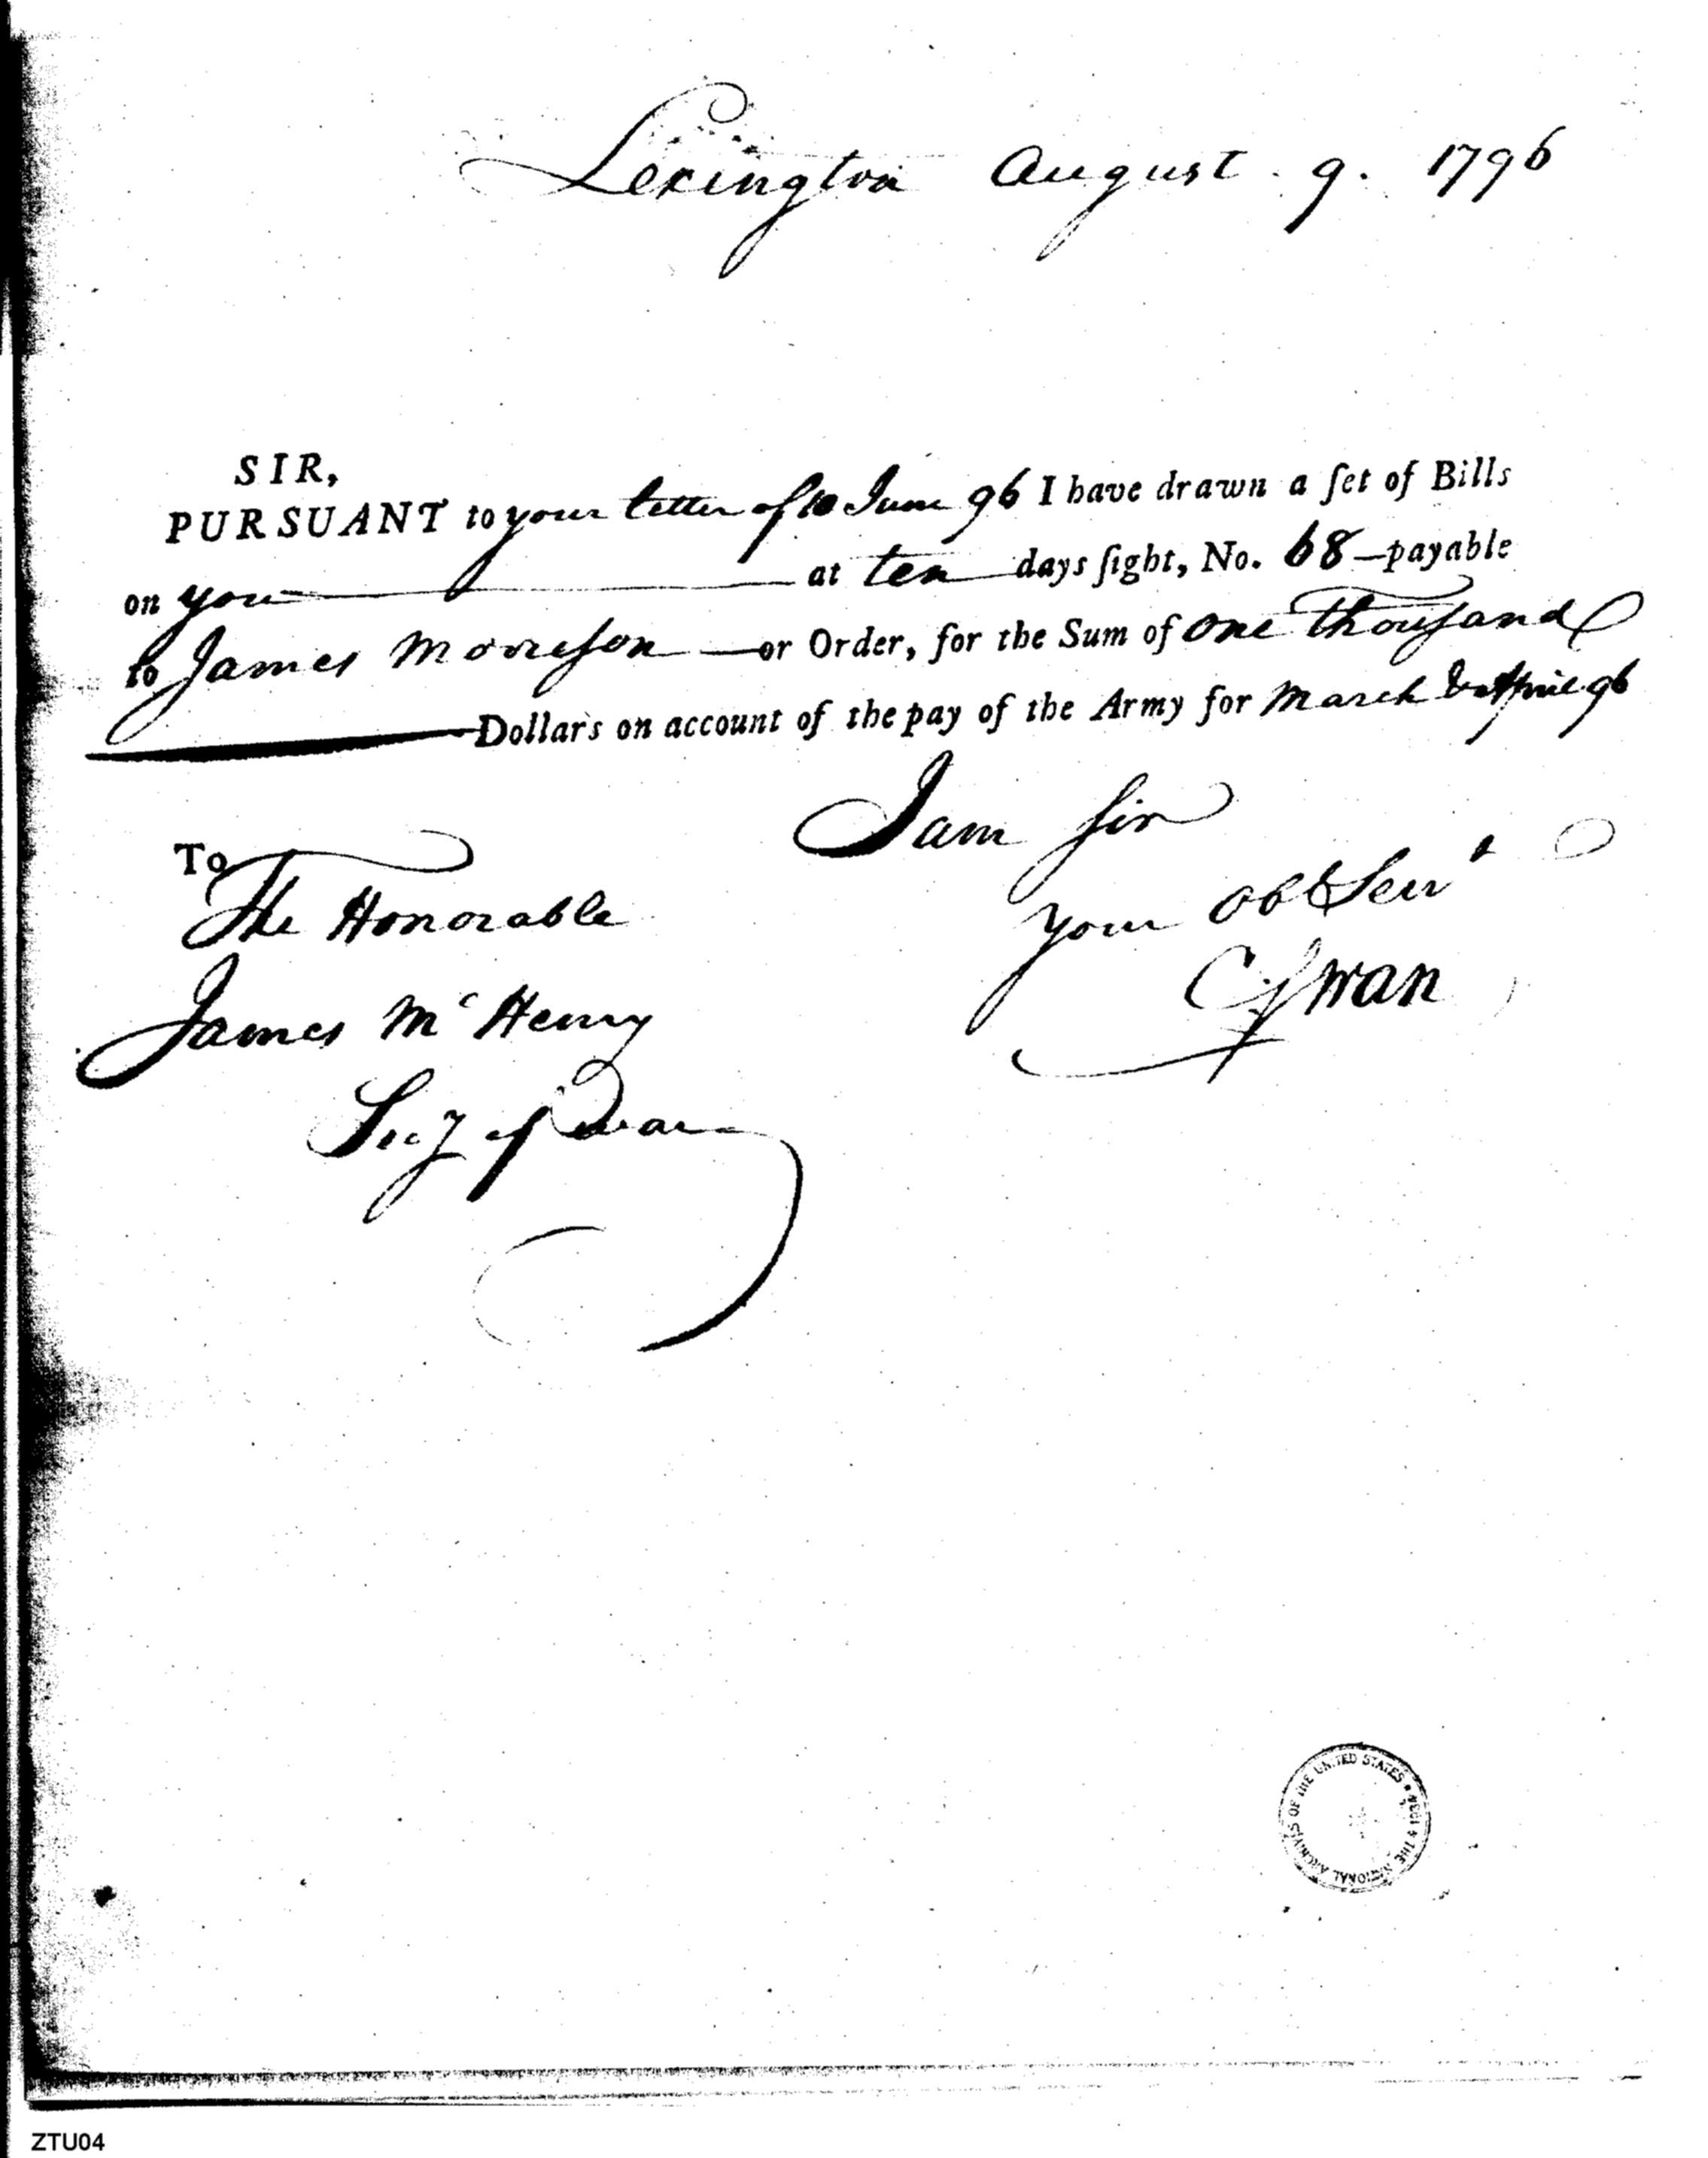 Lexington August. 9. 1796
SIR,
PURSUANT to your letter of 10 June 96 I have drawn a ſet of Bills
on you at ten days ſight, No. 68 — payable
to James Morrison — or Order, for the Sum of One Thouſand
Dollars on account of the pay of the Army for March & April 96
I am Sir
your Ob Serv t
C Swan
To
The Honorable
James Mc Henry
Secy of War
THE NATIONAL ARCHIVES OF THE UNITED STATES
ZTU04